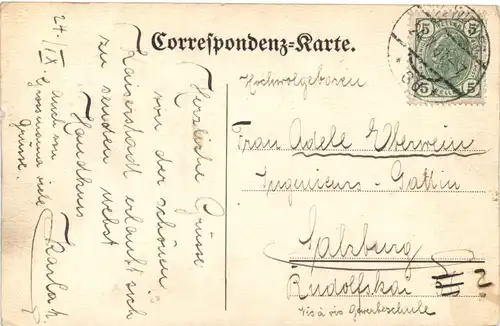 Correspondenz-Karte.
5 5
5 5
24./IX.
Herzliche Grüsse
von der schönen
Kaiserstadt erlaubt sich
zu senden nebst
Handkuss
Karla
auch von
Grossmama viele
Grüsse.
Hochwolgeboren
Frau Adele Eberwein
Ingenieurs-Gattin
Salzburg
Rudolfskai 2
vis à vis Gewerbeschule